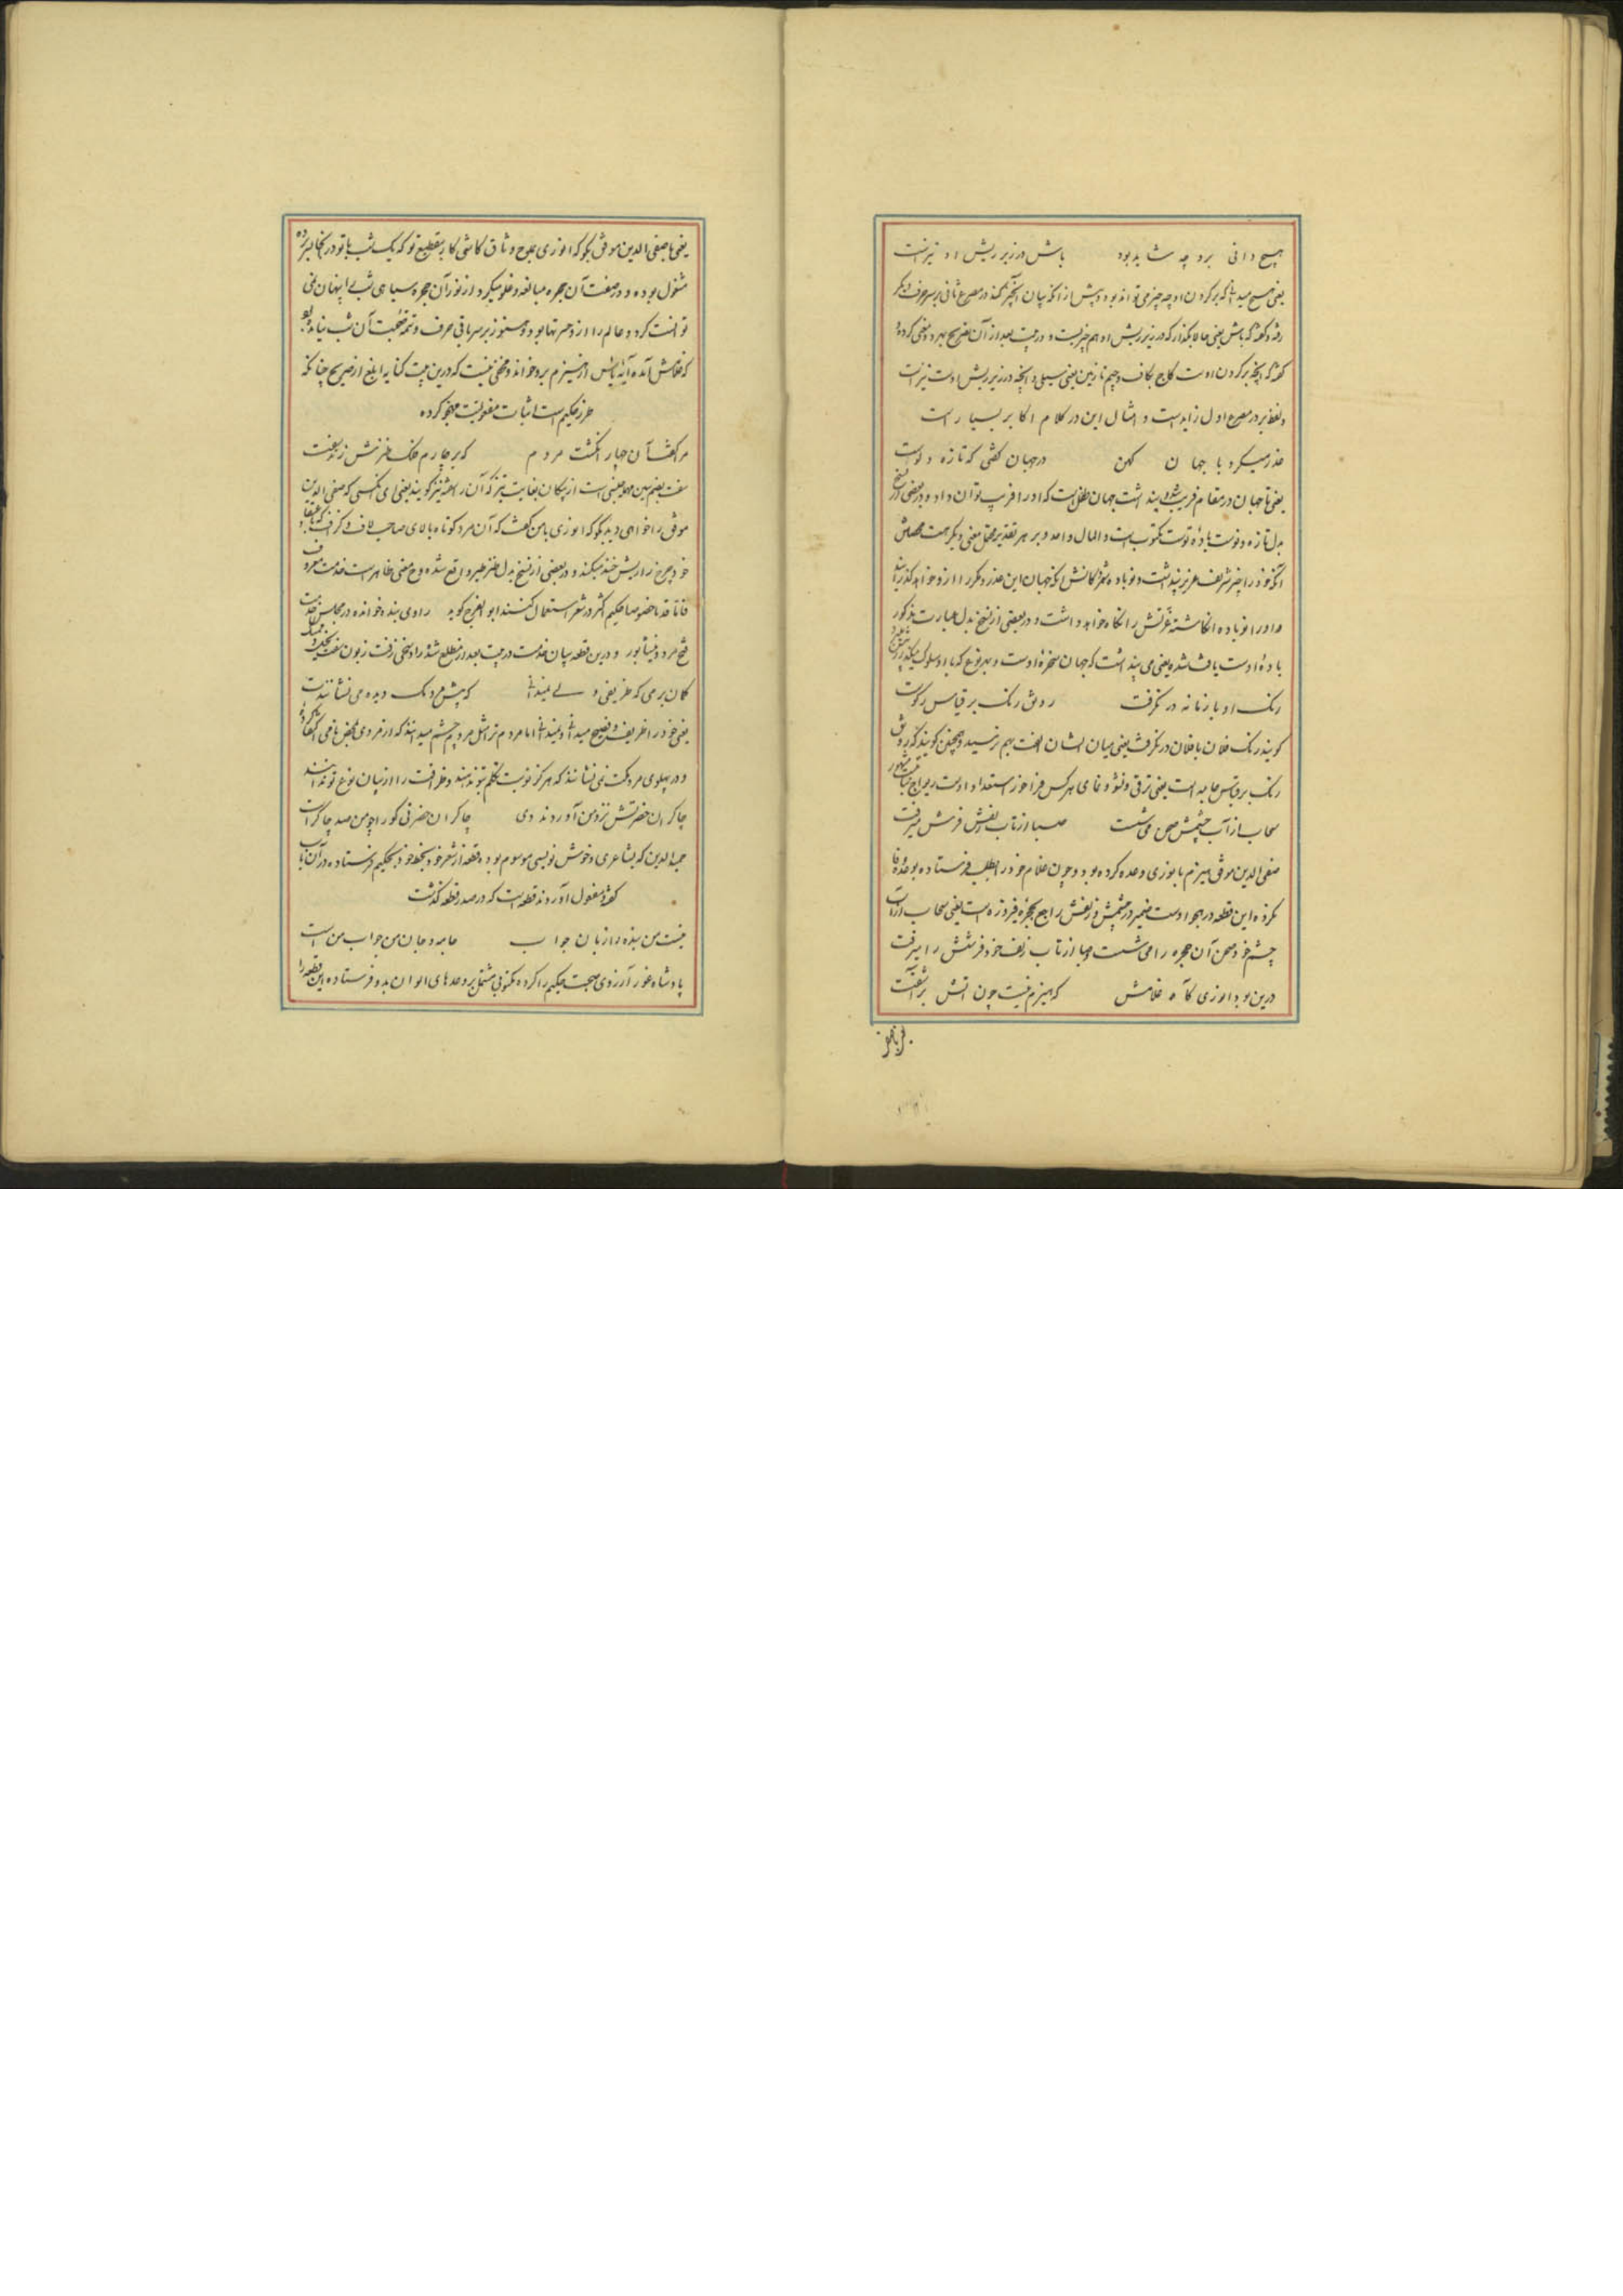 هیچ دانی برو چه شاید بود باش در زیر ریش او تیزست
یعنی هیچ میدانی که بر کردن او چه چیز می تواند بود و پیش از آنکه بیان آنچیز کند در مصرع ثانی بر سر حرف دیگر
رفته و گفته که باش یعنی حالا بگذار که در زیر ریش او هم چیزیست و در بیت بعد از آن تصریح بهر دو معنی کرده
گفته که آنچه بر کردن اوست کاج بکاف و جیم تازیین یعنی سیلی و آنچه در زیر ریش اوست تیز است
و لفظ بر در مصرع اول زایدست و امثال این در کلام اکابر بسیار است
عذر میکرد با جهان کهن در جهان کفتی که تازه و نوست
یعنی تا جهان در مقام فریب شده پنداشت جهان طفل است که او را فریب توان داد و در بعضی نسخ
بدل تازه و نوست باده توست مکتوب است و المال واحد و بر هر تقدیر محتمل معنی دیگر هست
آنکه خود را چیز شریف عزیز پنداشت و نوباده کانش آنکه جهان این عذر و مکر را ازو خواهد گذرانید
و او را نوباده انکاشته عزتش را نگاه خواهد داشت و در بعضی از نسخ بدل عبارت مذکور
باده اوست یافت شده یعنی می پنداشت که جهان سخره اوست و بهر نوع که با او سلوک میکند
رنک او با زمانه در نکرفت رونق رنک بر قیاس رکوست
کویند رنک فلان با فلان در نکرفت یعنی میان ایشان الفت بهم نرسید و همچنین کویند که رونق
رنک بر قیاس جامه است یعنی ترقی و نشو و نمای هر کس فراخور استعداد اوست
سحاب از آب چشمش صحن می شست صبا از تاب زلفش فرش میرفت
صفی الدین موفق هیزم بانوری وعده کرده بود و چون غلام خود را بطلب فرستاده بوعده وفا
نکرده این قطعه در هجو اوست ضمیر در چشمش و زلفش راجع بحجره فیروزه است یعنی سحاب از آب
چشم خود صحن آن حجره را می شست و صبا از تاب زلف خود فرشش را میرفت
درین بود انوری کآمد غلامش که هیزم نیست چون آتش برآشفت
یعنی با صفی الدین موفق بگو که انوری بمدح وثاق کاشی کار بقطیع تو که یک شب با تو در آنجا بسر برده
مشغول بوده و در صفت آن حجره مبالغه و غلو میکرد و از نور آن حجره سیاهی شب را پنهان می
توانست کرد و عالم را از و خبر تنها بود و هنوز بر سر باقی حرف و تتمه صحبت آن شب نیامده بود
که غلامش آمده آیه یأس از هیزم برو خواند و مخفی نیست که درین بیت کنایه ابلغ از صریح چنانکه
طرز حکیم است اثبات مفعولیت مهجو کرده
مرا گفت آن چهار انگشت مردم که بر چارم فلک طنزش زند سفت
سفت بضم سین مهمله بمعنی است از پیکان بغایت تیز که آن را کویند یعنی ای آنکسی که صفی الدین
موفق را خواهی دید بگو که انوری با من گفت که آن مرد کوتاه بالای صاحب لاف و کزاف
خود چرخ را ریش خند میکند و در بعضی از نسخ بدل طنز طیر واقع شده و معنی ظاهر است خدمت معروف
فاما قدما خصوصا حکیم اکثر در شعر استعمال کنند ابو الفرج کوید راوی بنده خوانده در مجلس خدمت
فتح مرو و نیشابور و درین قطعه بیان خدمت در بیت بعد از مطلع شده
کمان برمی که ظریفی و لبیدانی که پیش مردمک دیده می نشانندت
یعنی خود را ظریف و فصیح میدانی و لبیدانی اما مردم ترا مثل مردم چشم میدانند که از مردمی بمحض نامی اکتفا کرده
و در پهلوی مردمکت می نشانند که هر کز نوبت تکلم بتو ندهند و ظرافت را از بیان نوع تو ندانند
چاکران حضرتش نزد من آوردند دی چاکران حضرتی کو را چو من صد چاکر است
حمید الدین که بشاعری و خوش نویسی موسوم بوده قطعه از شعر خود بخط خود بحکیم فرستاده در آن باب
گفته و مفعول آوردند قطعه است که در صدر قطعه گذشت
نیست من بنده را زبان جواب جامه و جان من جواب من است
پادشاه غور آرزوی صحبت حکیم را کرده مکتوبی مشتمل بر وعدهای الوان بدو فرستاده این قطعه را